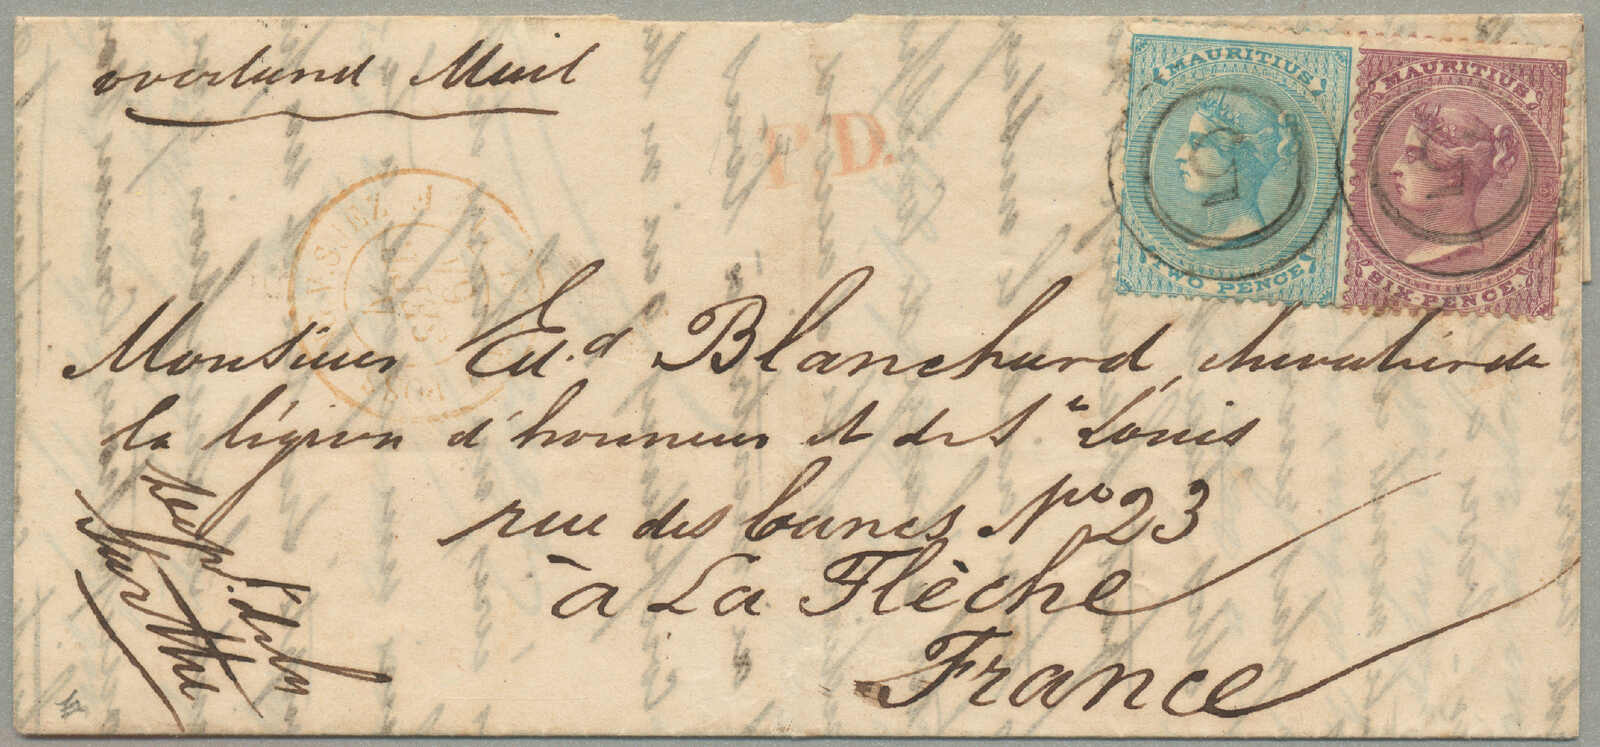 overland Mail
P.D.
MAURITIUS
TWO PENCE
MAURITIUS
SIX-PENCE.
Monsieur Ed.d Blanchard, chevalier de
la légion d'honneur et de St Louis
rue des Cancs No 23
à La Flèche
France